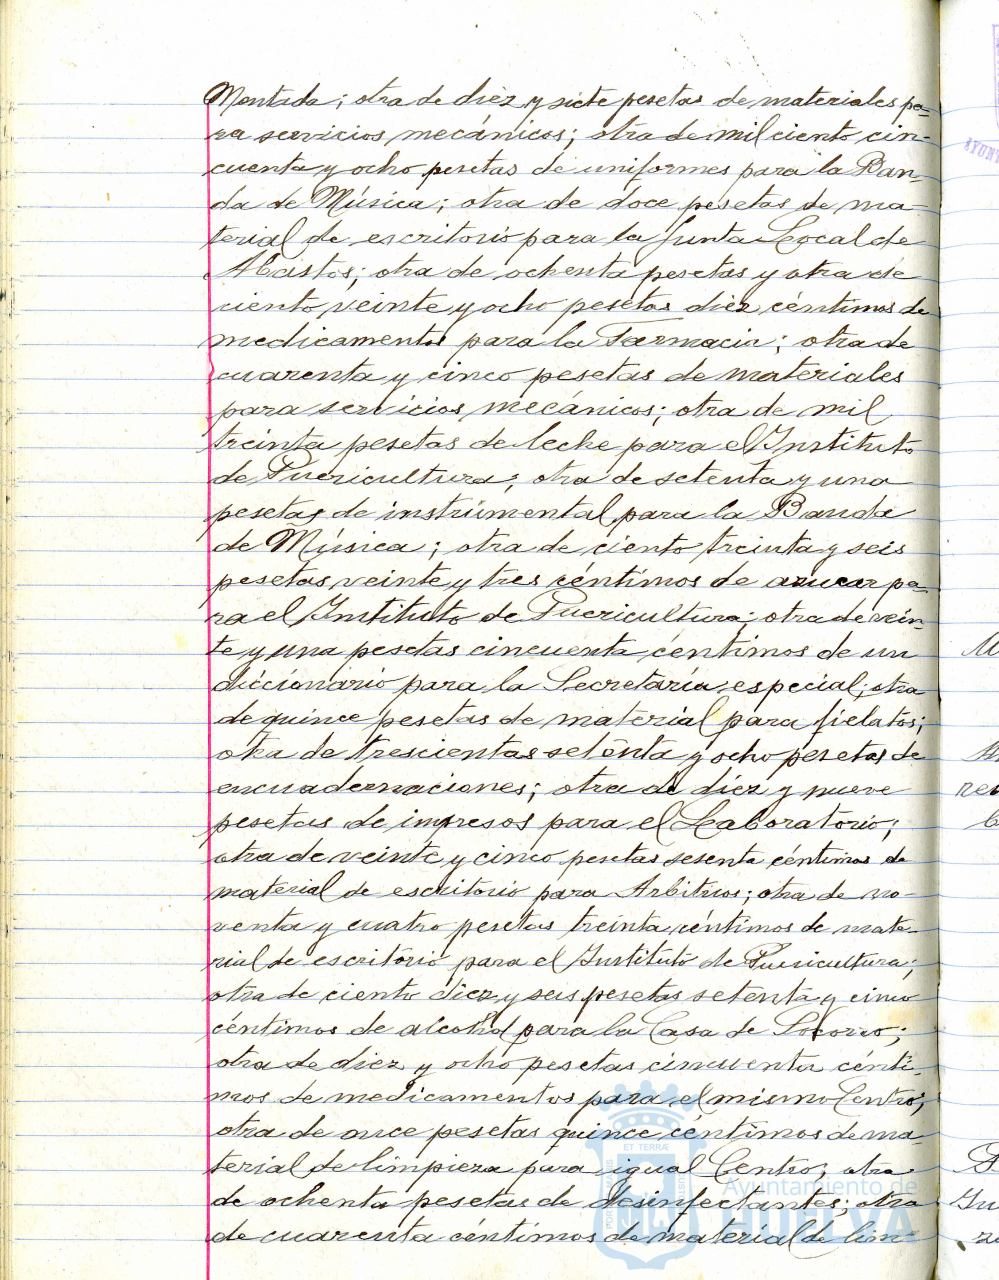 Montada; otra de diez y siete pesetas de materiales pa-
ra servicios mecánicos; otra de mil ciento cin-
cuenta y ocho pesetas de uniformes para la Ban-
da de Música; otra de doce pesetas de ma-
terial de escritorio para la Junta Local de
Abastos; otra de ochenta pesetas y otra de
ciento veinte y ocho pesetas diez céntimos de
medicamentos para la Farmacia; otra de
cuarenta y cinco pesetas de materiales
para servicios mecánicos; otra de mil
treinta pesetas de leche para el Instituto
de Puericultura; otra de setenta y una
pesetas de instrumental para la Banda
de Música; otra de ciento treinta y seis
pesetas veinte y tres céntimos de azucar pa-
ra el Instituto de Puericultura; otra de vein-
te y una pesetas cincuenta céntimos de un
diccionario para la Secretaría especial; otra
de quince pesetas de material para fielatos;
otra de trescientas setenta y ocho pesetas de
encuadernaciones; otra de diez y nueve
pesetas de impresos para el Laboratorio;
otra de veinte y cinco pesetas sesenta céntimos de
material de escritorio para Arbitrios; otra de no-
venta y cuatro pesetas treinta céntimos de mate-
rial de escritorio para el Instituto de Puericultura;
otra de ciento diez y seis pesetas setenta y cinco
céntimos de alcohol para la Casa de Socorro;
otra de diez y ocho pesetas cincuenta cénti-
mos de medicamentos para el mismo Centro;
otra de once pesetas quince centimos de ma-
terial de limpieza para igual Centro; otra
de ochenta pesetas de desinfectantes; otra
de cuarenta céntimos de material de lim-
ET TERRÆ
Ayuntamiento de
HUELVA